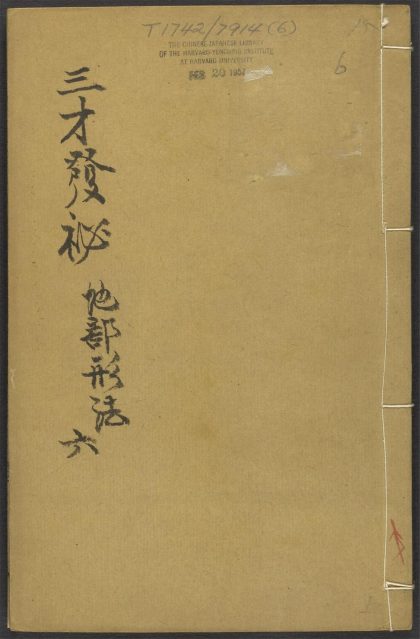 T1742/7914(6)
THE CHINESE-JAPANESE LIBRARY
OF THE HARVARD-YENCHING INSTITUTE
AT HARVARD UNIVERSITY
FEB 20 195
6
三才發祕
地部形法
六